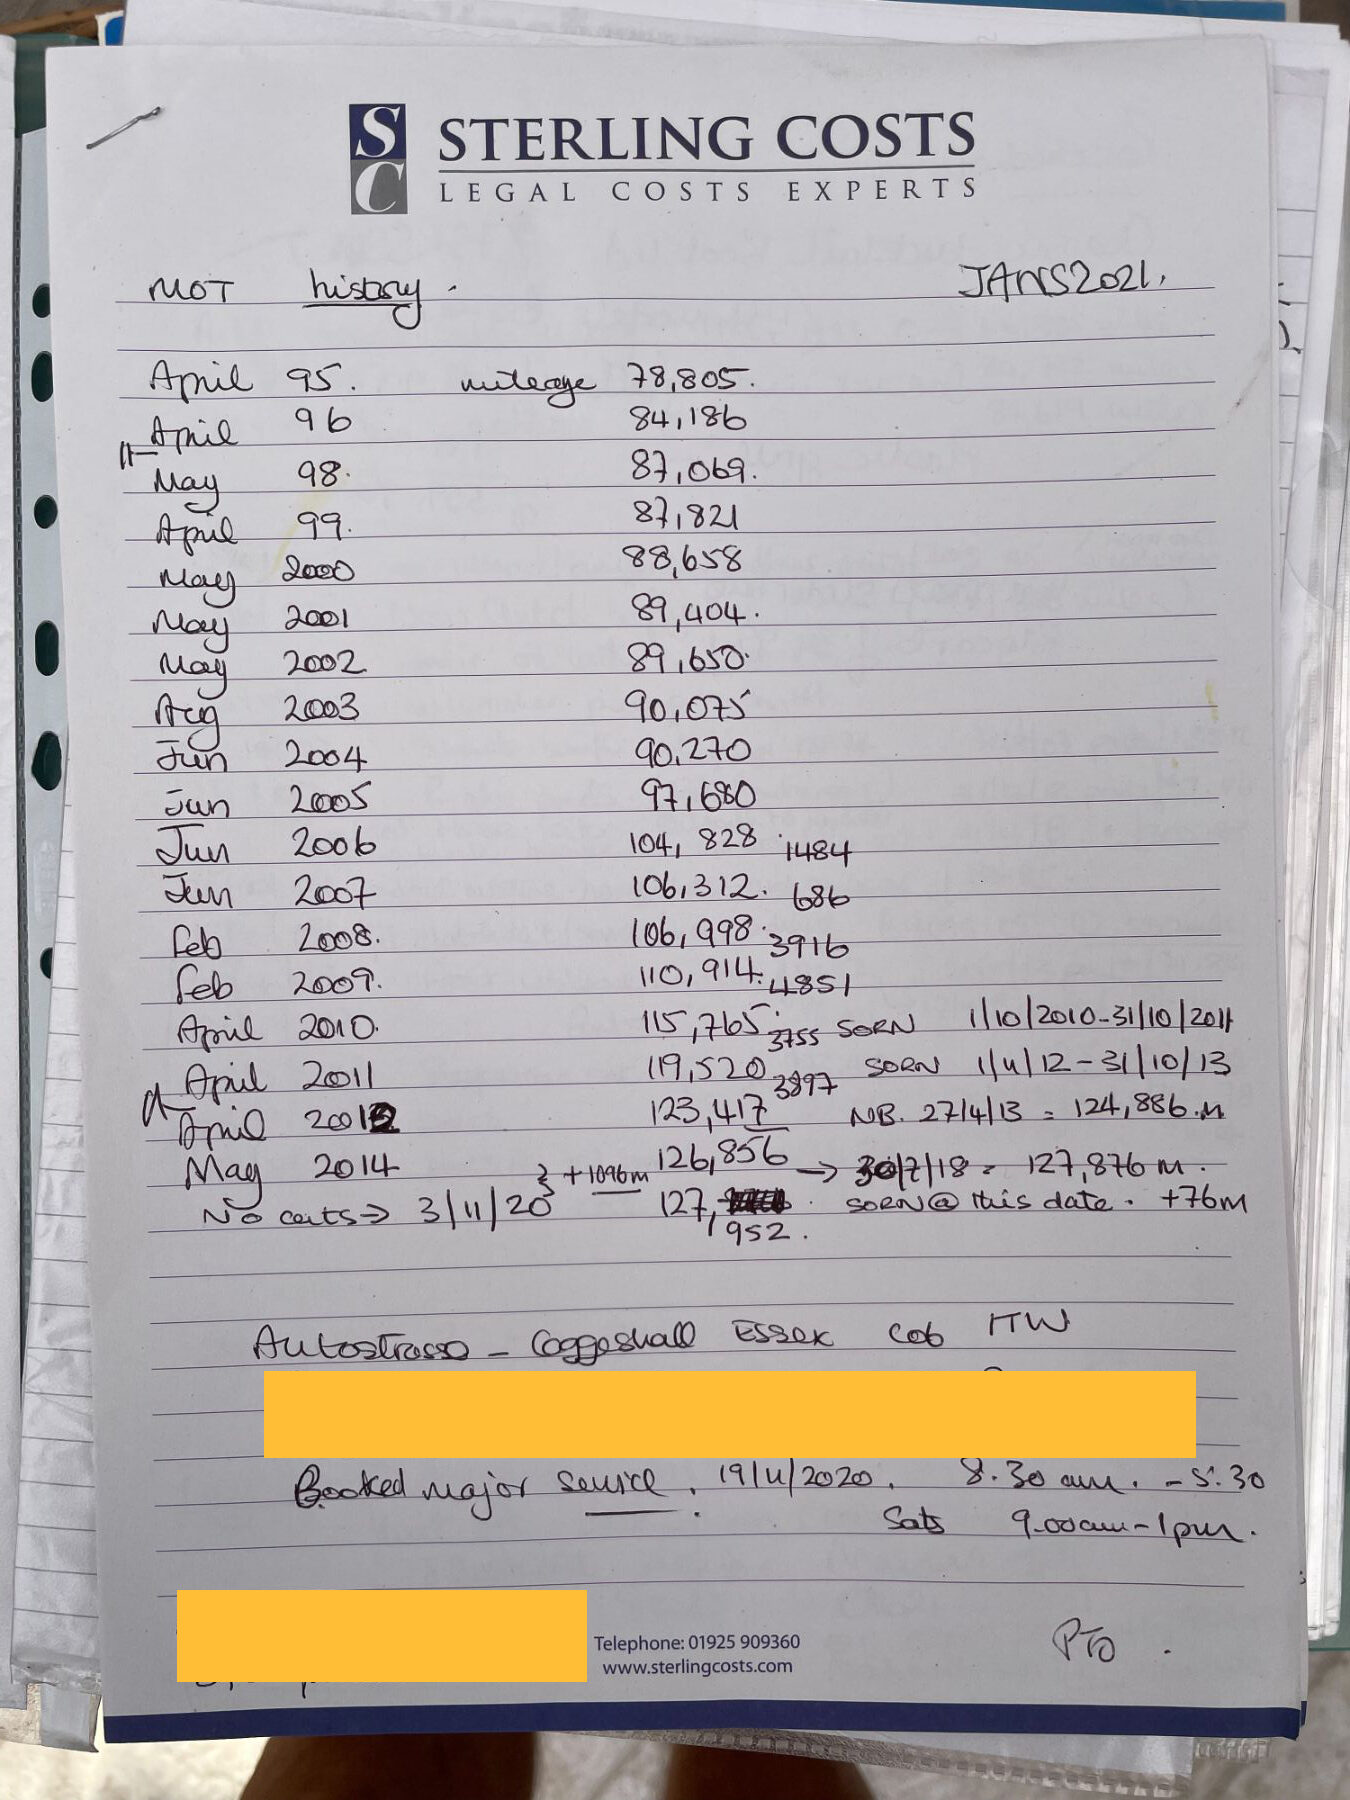 SC STERLING COSTS
LEGAL COSTS EXPERTS
MOT history. JAN 2021.
April 95. mileage 78,805.
April 96 84,186
May 98. 87,069.
April 99. 87,821
May 2000 88,658
May 2001 89,404.
May 2002 89,650.
Aug 2003 90,075
Jun 2004 90,270
Jun 2005 97,680
Jun 2006 104,828 1484
Jun 2007 106,312. 686
Feb 2008. 106,998. 3916
Feb 2009. 110,914. 4851
April 2010. 115,765. 3755 SORN 1/10/2010-31/10/2011
April 2011 119,520 3897 SORN 1/4/12-31/10/13
April 2012 123,417 NB. 27/4/13 = 124,886.m
May 2014 +1096m 126,856 → 30/7/18 = 127,876m.
No certs → 3/11/20 127,952. SORN @ this date. +76m
Autostrasse - Coggeshall ESSEX CO6 1TW
Booked major service. 19/11/2020. 8.30am. - 5.30
Sats 9.00am-1pm.
Telephone: 01925 909360
www.sterlingcosts.com
PTO.